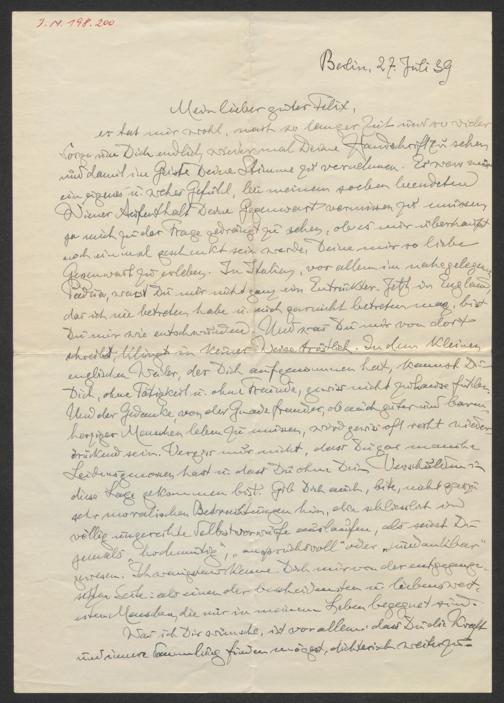 J.N. 198.200
Berlin, 27. Juli 39
Mein lieber guter Felix,
es tat mir wohl, nach so langer Zeit und so vieler
Sorge um Dich endlich wieder mal Deine Handschrift zu sehen
und damit im Geiste Deine Stimme zu vernehmen. Es war mir
ein eigenes u. Gefühl, bei meinem soeben beendeten
Wiener Aufenthalt Deine Gegenwart vermissen zu müssen,
ja mich zu der Frage gedrängt zu sehen, ob es mir überhaupt
noch einmal geschenkt sein werde, Deine mir so liebe
Gegenwart zu erleben. In Italien, vor allem im nahegelegenen
Padua, warst Du mir nicht ganz ein Entrückter. Jetzt in England,
das ich nie betreten habe u. auch gar nicht betreten mag, bist
Du mir wie entschwunden. Und was Du mir von dort
schreibst, klingt in keiner Weise tröstlich. In dem kleinen
englischen Weiler, der Dich aufgenommen hat, kannst Du
Dich, ohne Tätigkeit u. ohne Freunde, gewiss nicht zuhause fühlen.
Und der Gedanke, von der Gnade fremder, ob auch guter und barm-
herziger Menschen leben zu müssen, wird gewiss oft recht nieder-
drückend sein. Vergiss nur nicht, dass Du gar manche
Leidensgenossen hast u. dass Du ohne Dein Verschulden in
diese Lage gekommen bist. Gib Dich auch, bitte, nicht gar zu
sehr moralischen Betrachtungen hin, die schliesslich und
völlig ungerechte Selbstvorwürfe auslaufen, als seiest Du
jemals "hochmütig", "anspruchsvoll" oder "undankbar"
gewesen. Ich kenne Dich nur von der entgegenge-
setzten Seite: als einen der bescheidensten u. liebenswer-
testen Menschen, die mir in meinem Leben begegnet sind.
Was ich Dir wünsche, ist vor allem: dass Du die Kraft
und innere Sammlung finden mögest, dichterisch weiterzu-